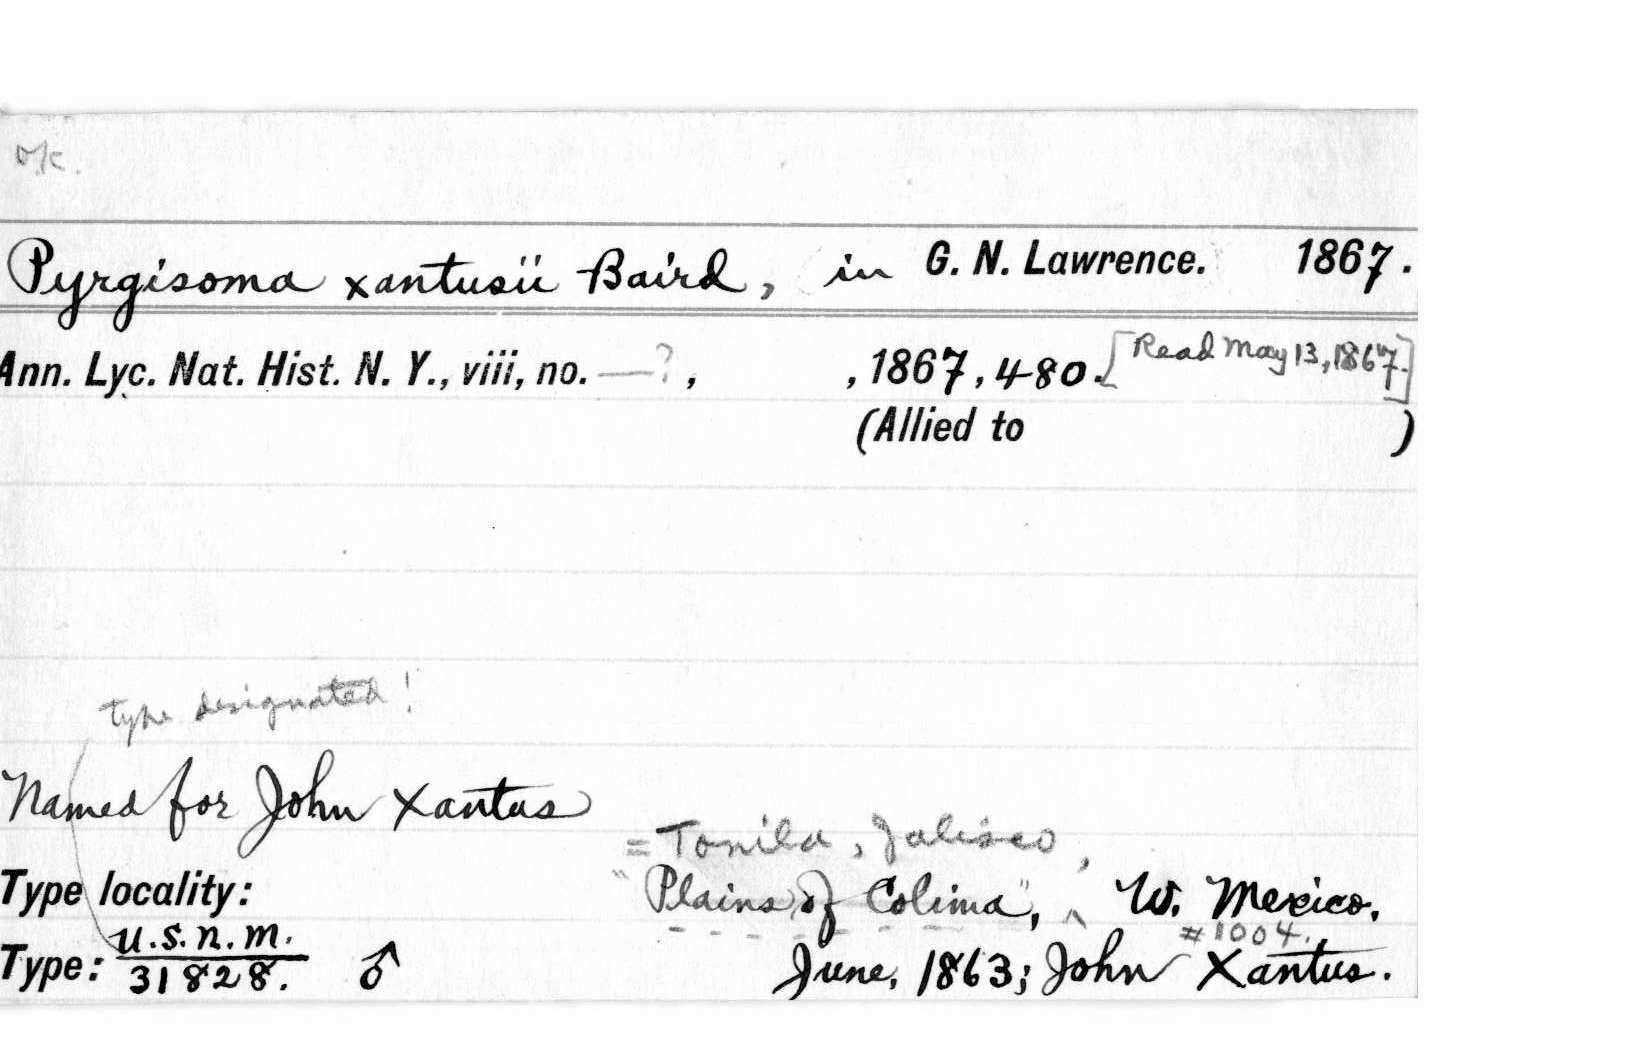 o/c.
Pyrgisoma xantusii Baird, in G. N. Lawrence. 1867.
Ann. Lyc. Nat. Hist. N. Y., viii, no. —?, , 1867, 480. [Read May 13, 1867.]
(Allied to )
type designated!
Named for John Xantus
= Tonila, Jalisco,
Type locality: "Plains of Colima", ^ W. Mexico.
U.S.N.M. #1004.
Type: 31828. ♂ June, 1863; John Xantus.